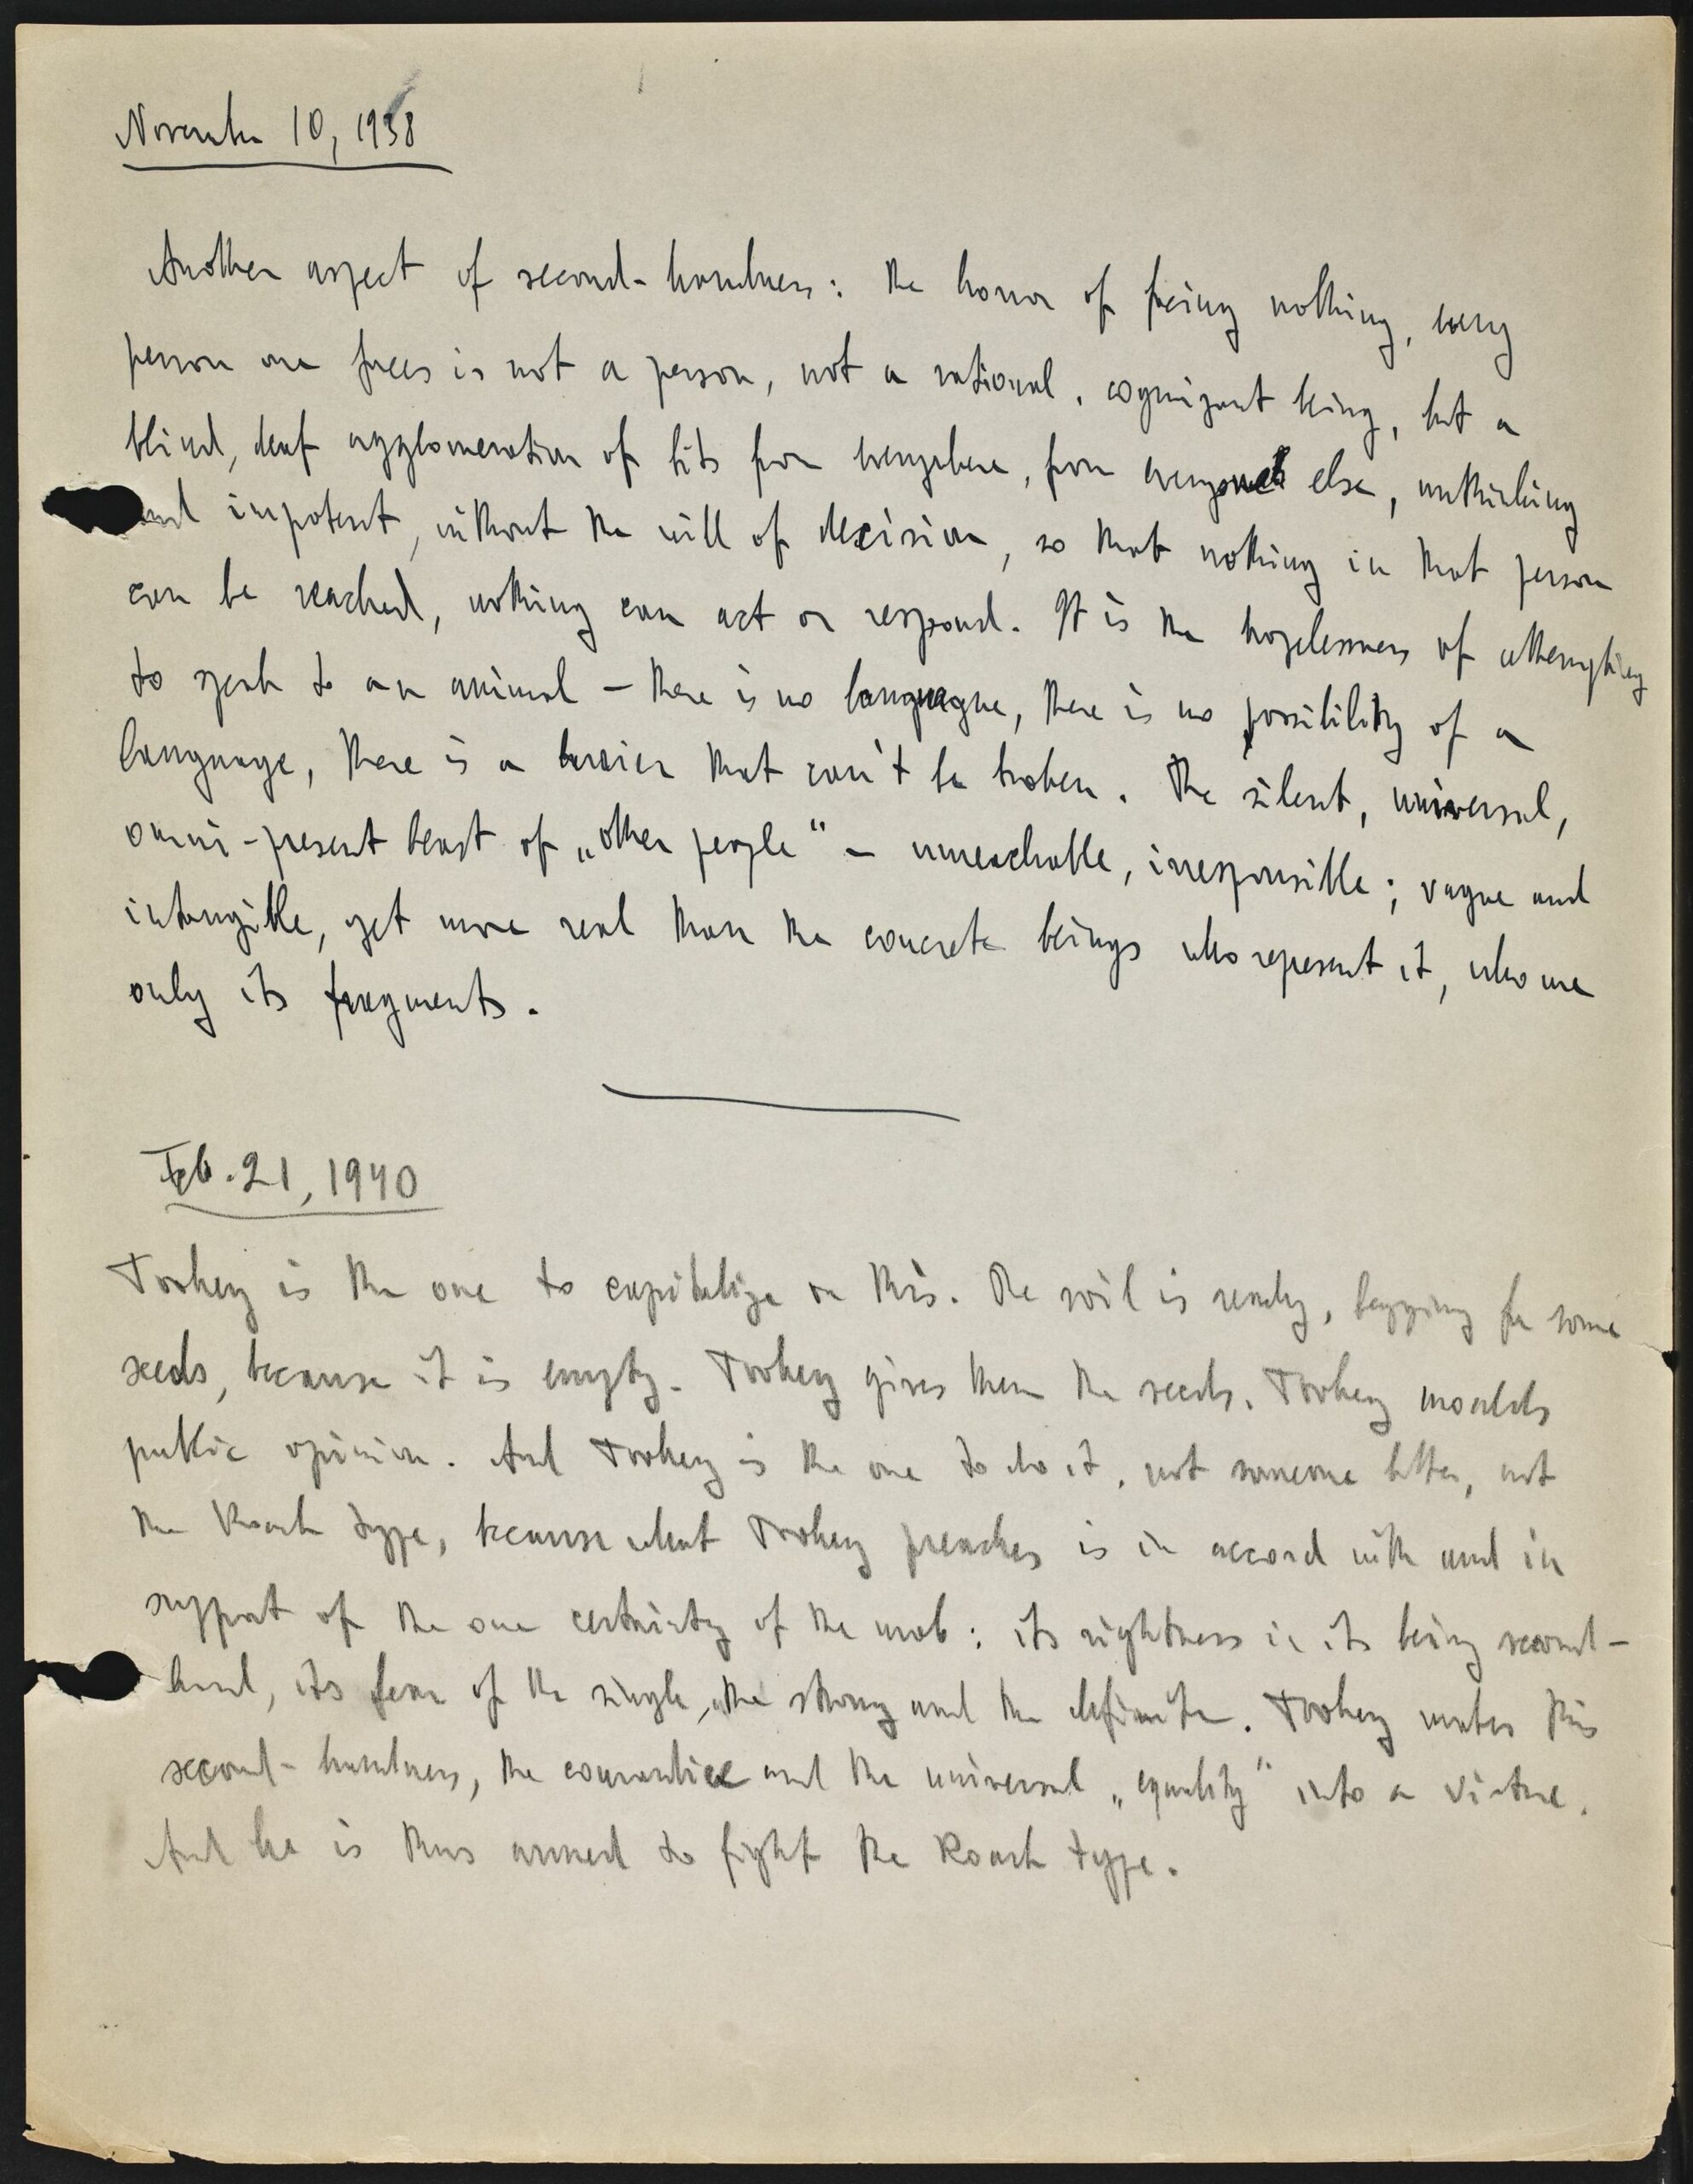 November 10, 1938
Another aspect of second-handness: the horror of facing nothing, every
person one faces is not a person, not a rational, cognizant being, but a
blind, deaf agglomeration of bits from everywhere, from everyone else, unthinking
and impotent, without the will of decision, so that nothing in that person
can be reached, nothing can act or respond. It is the hopelessness of attempting
to speak to an animal – there is no language, there is no possibility of a
language, there is a barrier that can't be broken. The silent, universal,
omni-present beast of „other people“ – unreachable, irresponsible; vague and
intangible, yet more real than the concrete beings who represent it, who are
only its fragments.
Feb. 21, 1940
Toohey is the one to capitalize on this. The soil is ready, begging for some
seeds, because it is empty. Toohey gives them the seeds. Toohey moulds
public opinion. And Toohey is the one to do it, not someone better, not
the Roark type, because what Toohey preaches is in accord with and in
support of the one certainty of the mob: its rightness in its being second-
hand, its fear of the single, the strong and the definite. Toohey makes this
second-handness, the cowardice and the universal „equality“ into a virtue.
And he is thus armed to fight the Roark type.